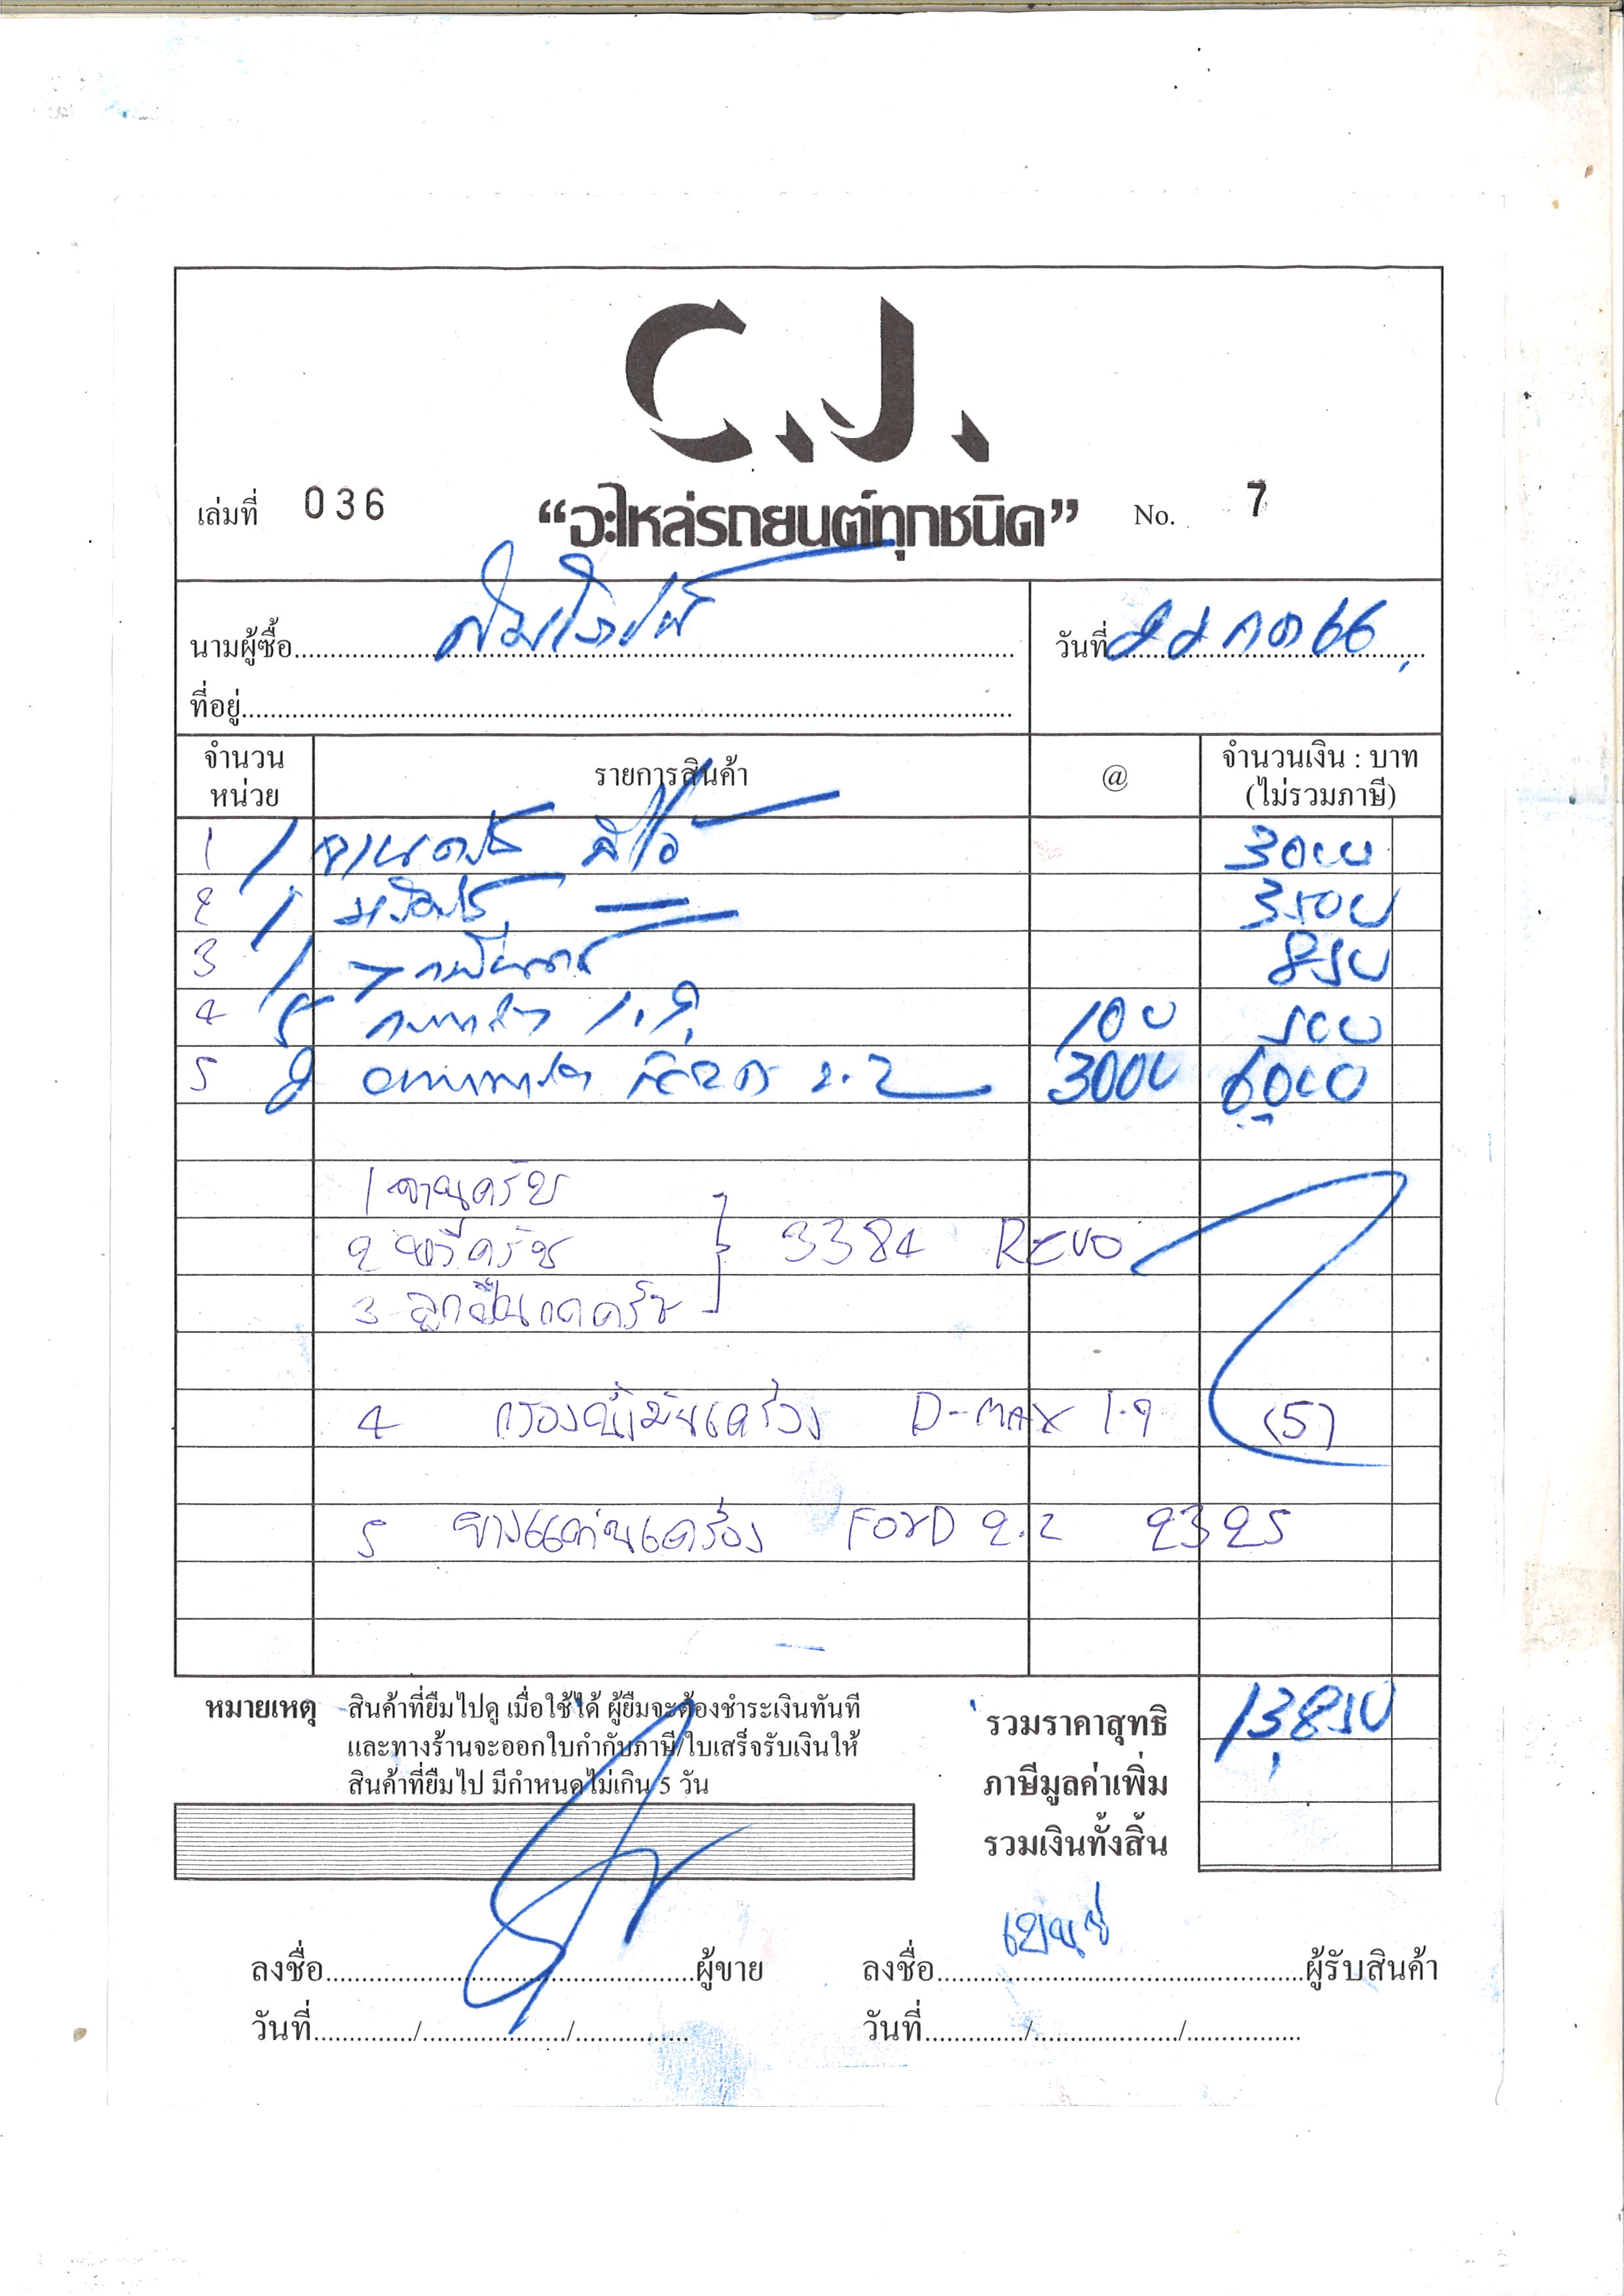 C.J.
เล่มที่ 036 “อะไหล่รถยนต์ทุกชนิด” No. 7
นามผู้ซื้อ วันที่ 22 กค 66
ที่อยู่
จำนวนหน่วย รายการสินค้า @ จำนวนเงิน : บาท (ไม่รวมภาษี)
1 / จานครัช รีโว่ 3000
2 / 3500
3 / 850
4 5 1.9 100 500
5 2 2.2 3000 6000
1 จานครัช
2 หวีครัช } 3384 REVO
3 ลูกปืนกดครัช
4 กรองน้ำมันเครื่อง D-MAX 1.9 (5)
5 ยางแท่นเครื่อง FORD 2.2 2325
หมายเหตุ สินค้าที่ยืมไปดู เมื่อใช้ได้ ผู้ยืมจะต้องชำระเงินทันที
และทางร้านจะออกใบกำกับภาษี/ใบเสร็จรับเงินให้
สินค้าที่ยืมไป มีกำหนดไม่เกิน 5 วัน
รวมราคาสุทธิ 13,850
ภาษีมูลค่าเพิ่ม
รวมเงินทั้งสิ้น
ลงชื่อ ผู้ขาย ลงชื่อ ผู้รับสินค้า
วันที่ / / วันที่ / /